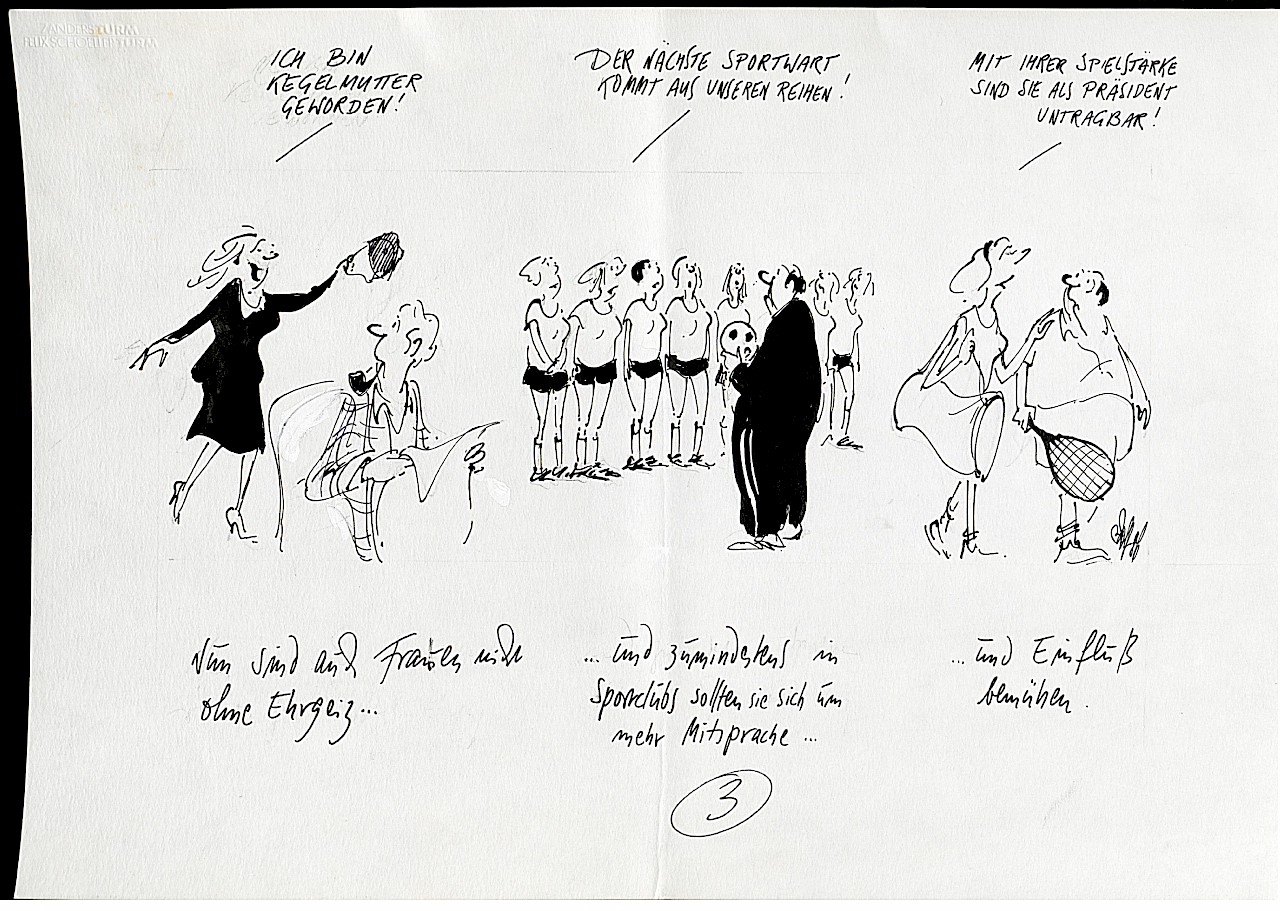 ZANDERS TURM
FELIX SCHOELLER TURM
ICH BIN
KEGELMUTTER
GEWORDEN!
DER NÄCHSTE SPORTWART
KOMMT AUS UNSEREN REIHEN!
MIT IHRER SPIELSTÄRKE
SIND SIE ALS PRÄSIDENT
UNTRAGBAR!
Nun sind auch Frauen nicht
ohne Ehrgeiz...
... und zumindestens in
Sportclubs sollten sie sich um
mehr Mitsprache ...
3
... und Einfluß
bemühen.